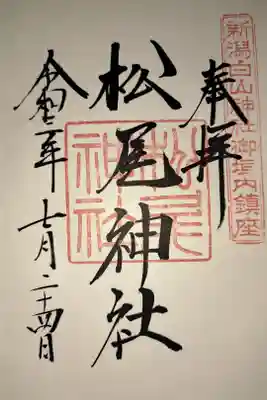 新潟白山神社御境内鎮座
奉拝
松尾神社
松尾神社
令和二年七月二十四日